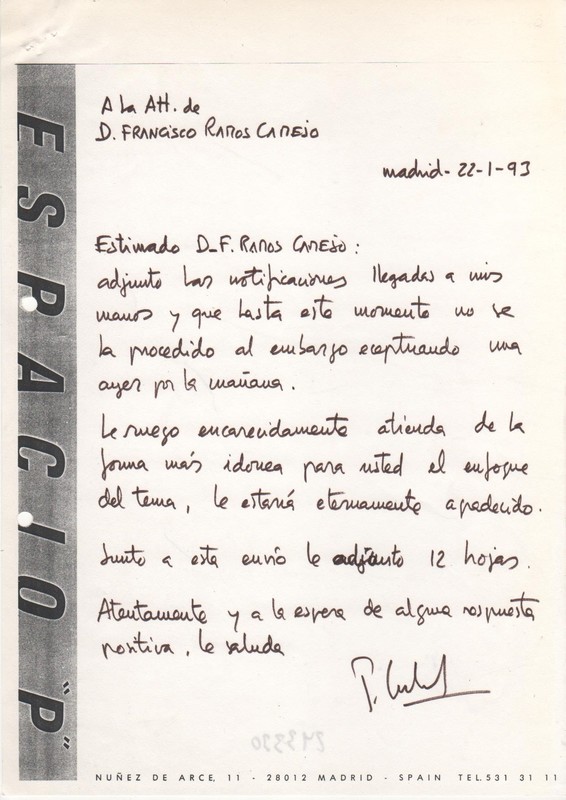 ESPACIO "P"
A la Att. de
D. FRANCISCO RAMOS CAMEJO
madrid- 22-1-93
Estimado D-F. RAMOS CAMEJO:
adjunto las notificaciones llegadas a mis
manos y que hasta este momento no se
ha procedido al embargo eceptuando una
ayer por la mañana.
Le ruego encarecidamente atienda de la
forma más idonea para usted el enfoque
del tema, le estaría eternamente agradecido.
Junto a este envío le adjunto 12 hojas.
Atentamente y a la espera de alguna respuesta
positiva, le saluda
NUÑEZ DE ARCE, 11 - 28012 MADRID - SPAIN TEL. 531 31 11